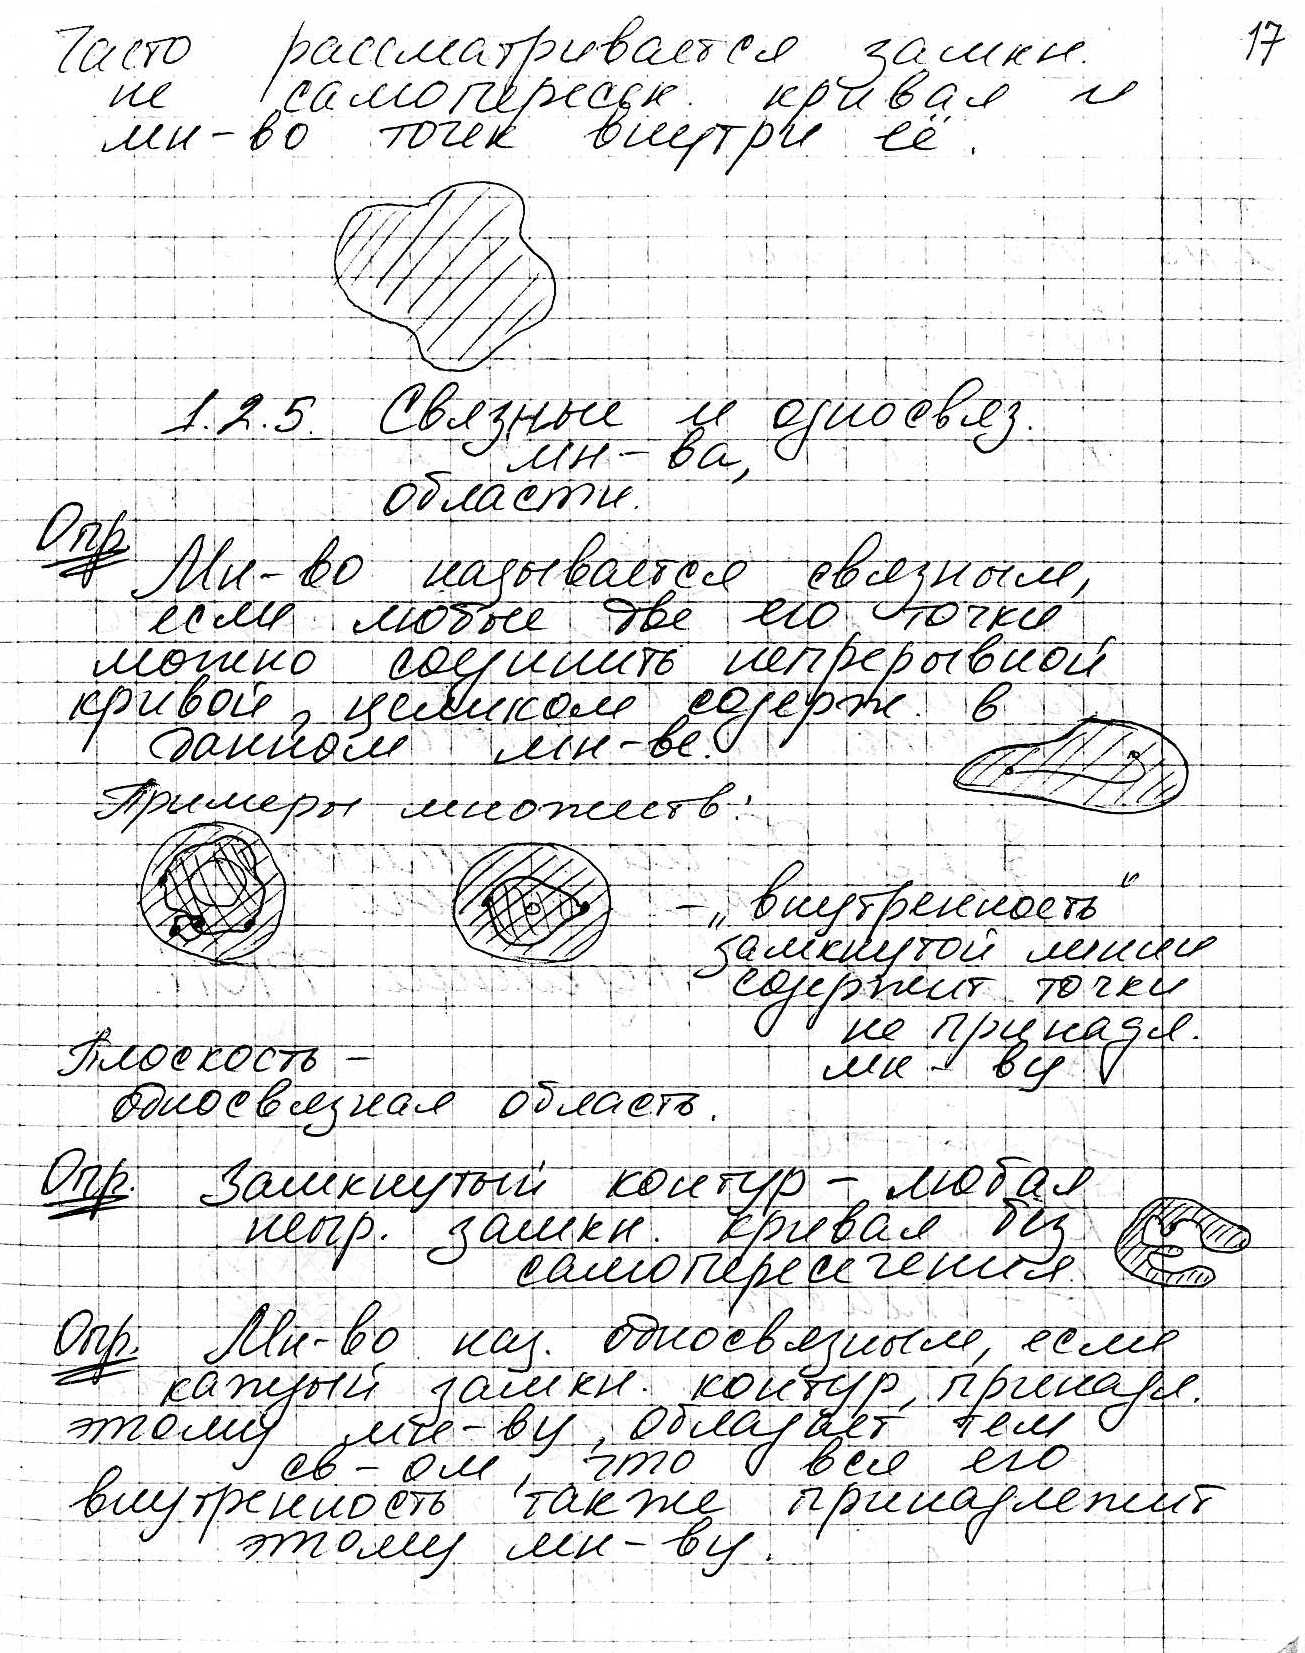 17
Часто рассматривается замкн.
не самопересек. кривая и
мн-во точек внутри её.
1.2.5. Связные и односвяз.
мн-ва,
области.
Опр.
Мн-во называется связным,
если любые две его точки
можно соединить непрерывной
кривой, целиком содерж. в
данном мн-ве.
Примеры множеств:
- „внутренность“
замкнутой линии
содержит точки
не принадл.
мн-ву
Плоскость -
односвязная область.
Опр. Замкнутый контур - любая
непр. замкн. кривая без
самопересечения
Опр. Мн-во наз. односвязным, если
каждый замкн. контур, принадл.
этому мн-ву, обладает тем
св-ом, что вся его
внутренность также принадлежит
этому мн-ву.